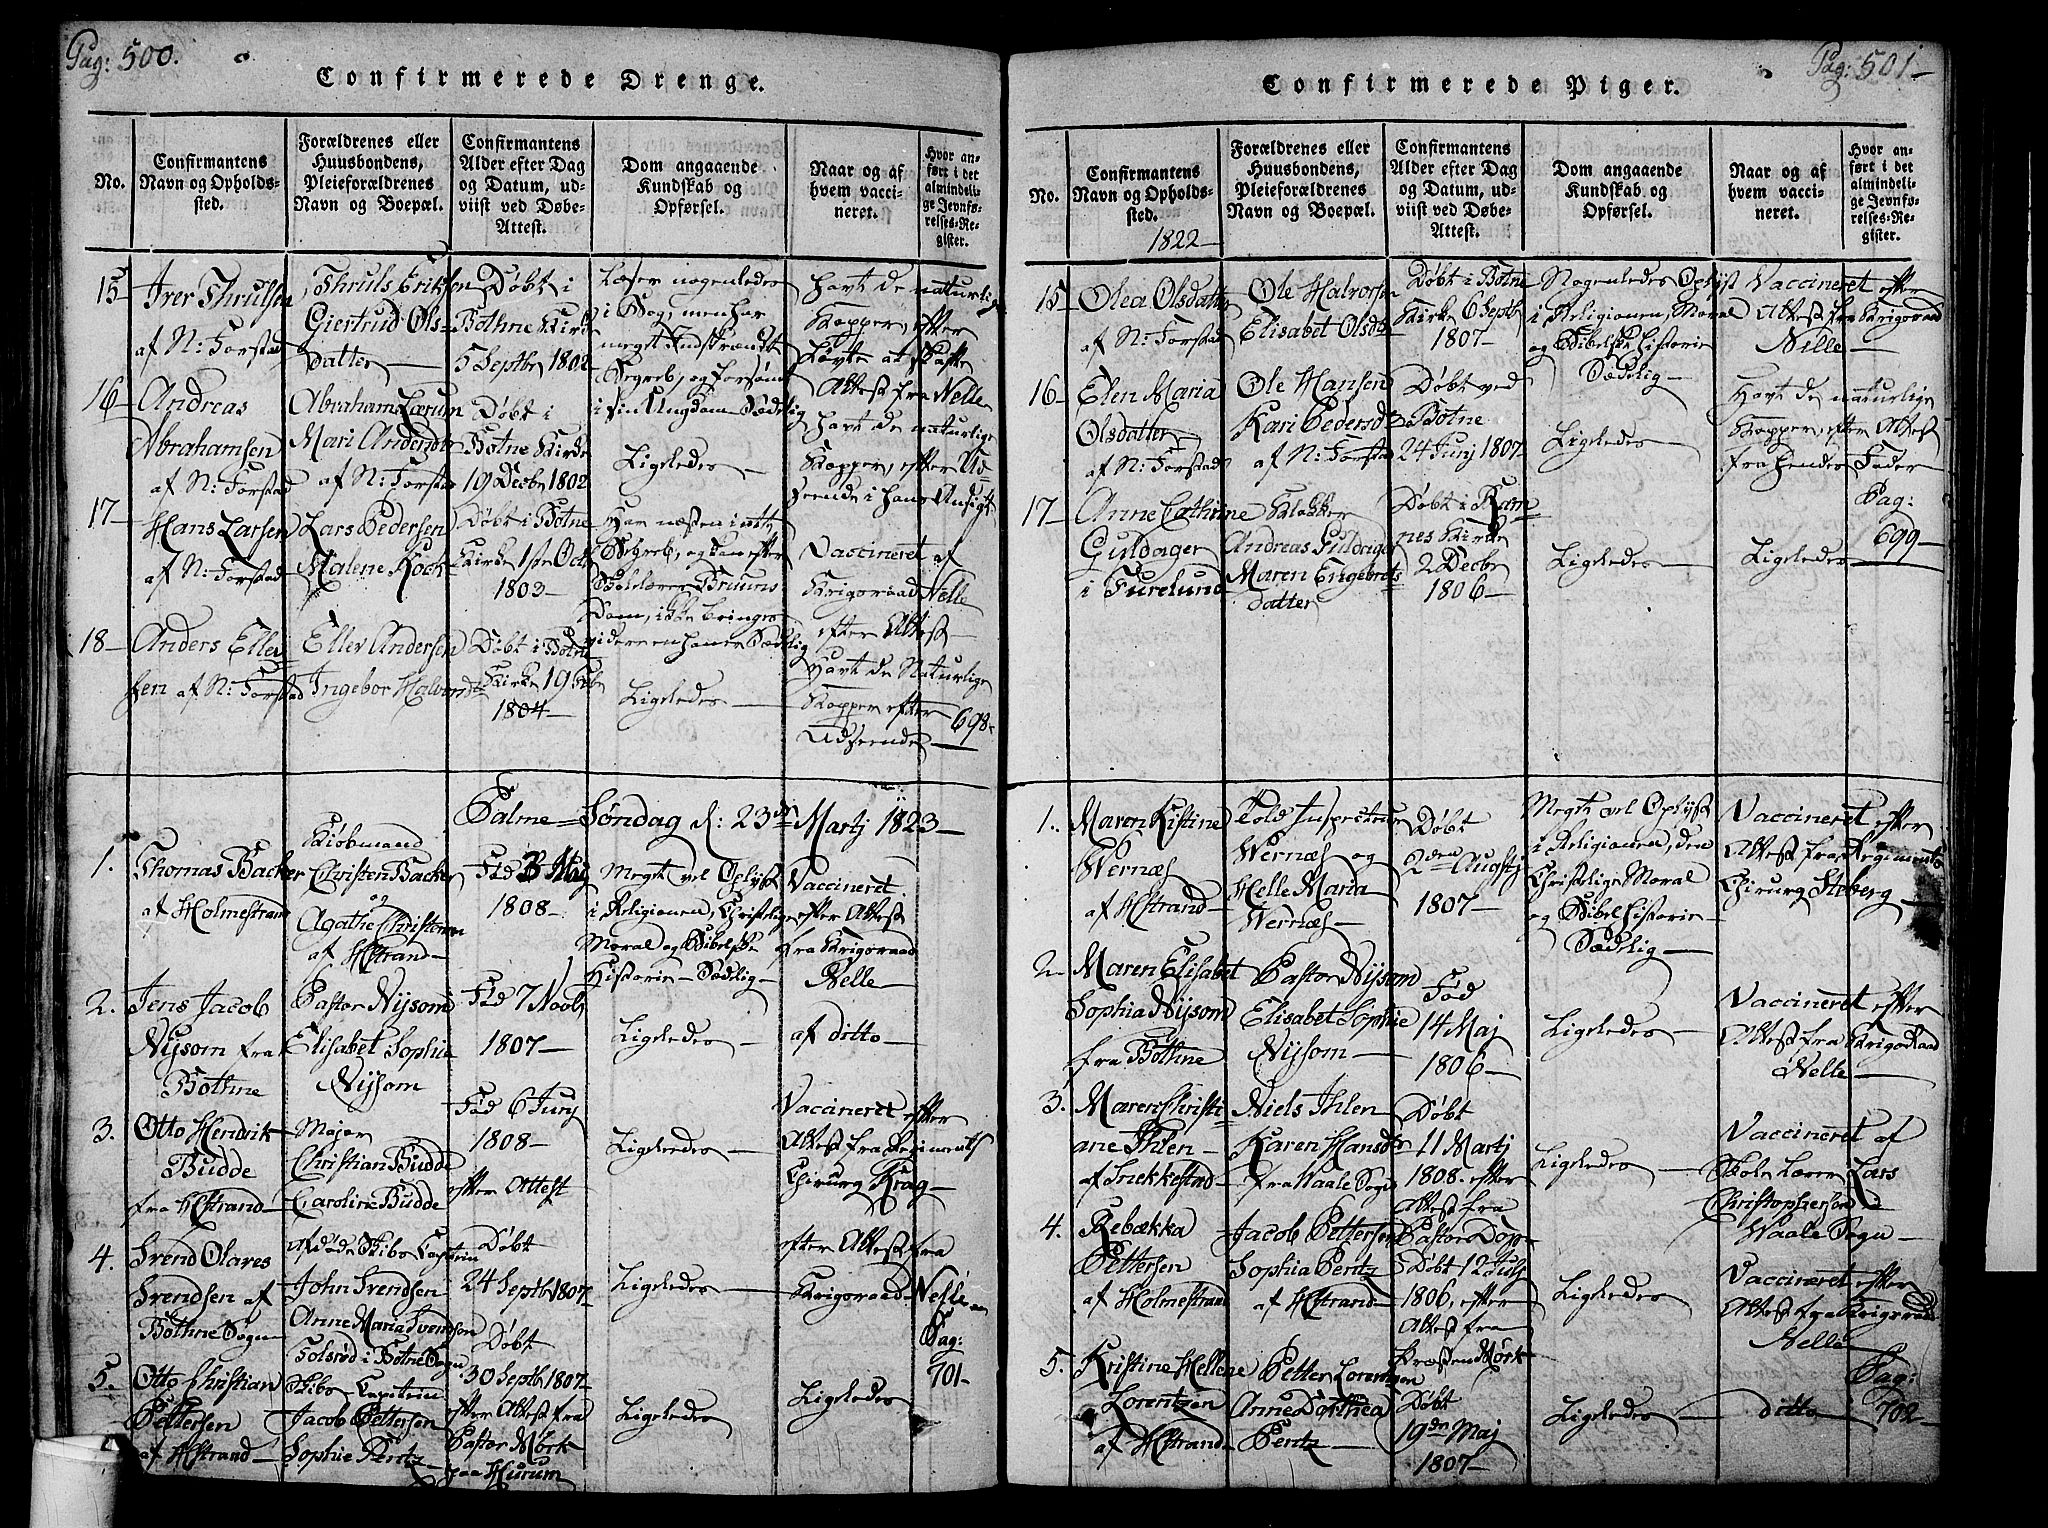 Pag: 500.
Confirmerede Drenge.
No.
Confirmantens
Navn og Opholds-
sted.
Forældrenes eller
Huusbondens,
Pleieforældrenes
Navn og Boepæl.
Confirmantens
Alder efter Dag
og Datum, ud-
viist ved Døbe-
Attest.
Dom angaaende
Kundskab og
Opførsel.
Naar og af
hvem vacci-
neret.
Hvor an-
ført i det
almindeli-
ge Jevnfø-
relses-Re-
gister.
15
Iver Thrulsen
af N: Forstad
Thruls Eriksen
Giertrud Ols-
datter
Døbt i
Bothne Kirke
5 Septbr 1802
Læser nogenledes
i Bog, men har
meget Indskrændt
Begreb, og forsømt
i sin Ungdom Sædelig
Havt de naturlige
Kopper, efter
Løvte at skaffe
Attest fra Nelle
16
Andreas
Abrahamsen
af N: Forstad
Abraham Larum
Mari Andersdtr
af N: Forstad
Døbt i
Botne Kirke
19 Decbr 1802
Ligeledes
havt de naturlige
Kopper, efter Ud-
seende i hans Ansigt
17
Hans Larsen
af N: Forstad
Lars Pedersen
Malene Koch
Døbt i Botne
Kirke 1ste Octb
1803
Har næsten intet
Begreb, og kan efter
Skolelærer Bruuns
Dom, ikke bringes
videre end han er Sædelig
Vaccineret af
Krigsraad Nelle
efter Attest
18
Anders Ellev
sen af N: Forstad
Ellev Andersen
Ingebor Halvorsdtr
Døbt i Botne
Kirke 19 Feb
1804
Ligeledes
Havt de Naturlige
Kopper efter
Udseende
698
Palme-Søndag d: 23de Martj 1823
1.
Thomas Backer
af Holmestrand
Kiøbmand
Christen Backer
og
Agathe Christensen
af HStrand
Fød 3 Maj
1808
Meget vel Oplyst
i Religionen, Christelige
Moral og Bibelske
Historie Sædlig
Vaccineret
efter Attest
fra Krigsraad
Nelle
2.
Jens Jacob
Nysom fra
Bothne
Pastor Nysom
Elisabet Sophia
Nysom
Fød 7 Novb
1807
Ligeledes
af ditto
3.
Otto Hendrik
Budde
fra HStrand
Major
Christian Budde
Caroline Budde
Fød 6 Junj
1808
efter Attest
Ligeledes
Vaccineret efter
Attest fra Regiments
Chirurg Krag
4.
Svend Olares
Svendsen af
Bothne Sogn
Afdøde Skibs Captein
John Svendsen
Anne Maria Svendsen
Solsrød i Botne Sogn
Døbt
24 Septb 1807
Ligeledes
efter Attest fra
Krigsraad Nelle
Pag:
701
5.
Otto Christian
Pettersen
af HStrand
Skibs Capitein
Jacob Pettersen
Sophie Pentz
Døbt
30 Septb 1807
efter Attest fra
Pastor Mørk
paa Hurum
Ligeledes
Ligeledes
Pag: 501
Confirmerede Piger.
No.
Confirmantens
Navn og Opholds-
sted.
1822
Forældrenes eller
Huusbondens,
Pleieforældrenes
Navn og Boepæl.
Confirmantens
Alder efter Dag
og Datum, ud-
viist ved Døbe-
Attest.
Dom angaaende
Kundskab og
Opførsel.
Naar og af
hvem vacci-
neret.
Hvor an-
ført i det
almindeli-
ge Jevnfø-
relses-Re-
gister.
15
Olea Olsdatter
af N: Forstad
Ole Halvorsen
Elisabet Olsdtr
Døbt i Botne
Kirke 6 Septb
1807
Nogenledes Oplyst
i Religionen, Moral
og Bibelske Historie
Sædelig
Vaccineret efter
Attest fra Krigsraad
Nelle
16
Elen Maria
Olsdatter
af N: Forstad
Ole Hansen
Kari Pedersd
af N: Forstad
Døbt ved
Botne
24 Junj 1807
Ligeledes
Havt de naturlige
Kopper, efter Attest
fra hendes Fader
17
Anne Cathrine
Guldager
i Furelund
Klokker
Andreas Guldager
Maren Engebrets
datter
Døbt i Ram
nes Kirke
2 Decbr
1806
Ligeledes
Ligeledes
Pag:
699
1.
Maren Kistine
Wernæs
af HStrand
Told Inspecteur
Wernæs og
Helle Maria
Wernæs
Døbt
2den Augstj
1807
Meget vel Oplyst
i Religionen, den
Christelige Moral
og Bibel Historie
Sædelig
Vaccineret efter
Attest fra Regiments
Chirurg Steberg
2
Maren Elisabet
Sophia Nysom
fra Bothne
Pastor Nysom
Elisabet Sophie
Nysom
Fød
14 Maj
1806
Ligeledes
Vaccineret efter
Attest fra KrigsRaad
Nelle
3.
Maren Christi
ane Ihlen
af Snekkestad
Niels Ihlen
Karen Hansdtr
fra Waale Sogn
Døbt
11 Martj
1808. efter
Attest fra
Pastor Døp
Ligeledes
Vaccineret af
Skole Lærer Lars
Christophersen
Waale Sogn
4.
Rebækka
Pettersen
af Holmestrand
Jacob Pettersen
Sophia Pentz
af HStrand
Døbt 12 Julj
1806, efter
Attest fra
Præsten Mørk
Ligeledes
Vaccineret efter
Attest fra Krigsraad
Nelle
5.
Kristine Hellene
Lorentzen
af HStrand
Petter Lorentzen
Anne Dorthea
Pentz
Døbt
19de Maj
1807
Ligeledes
ditto
Pag:
702